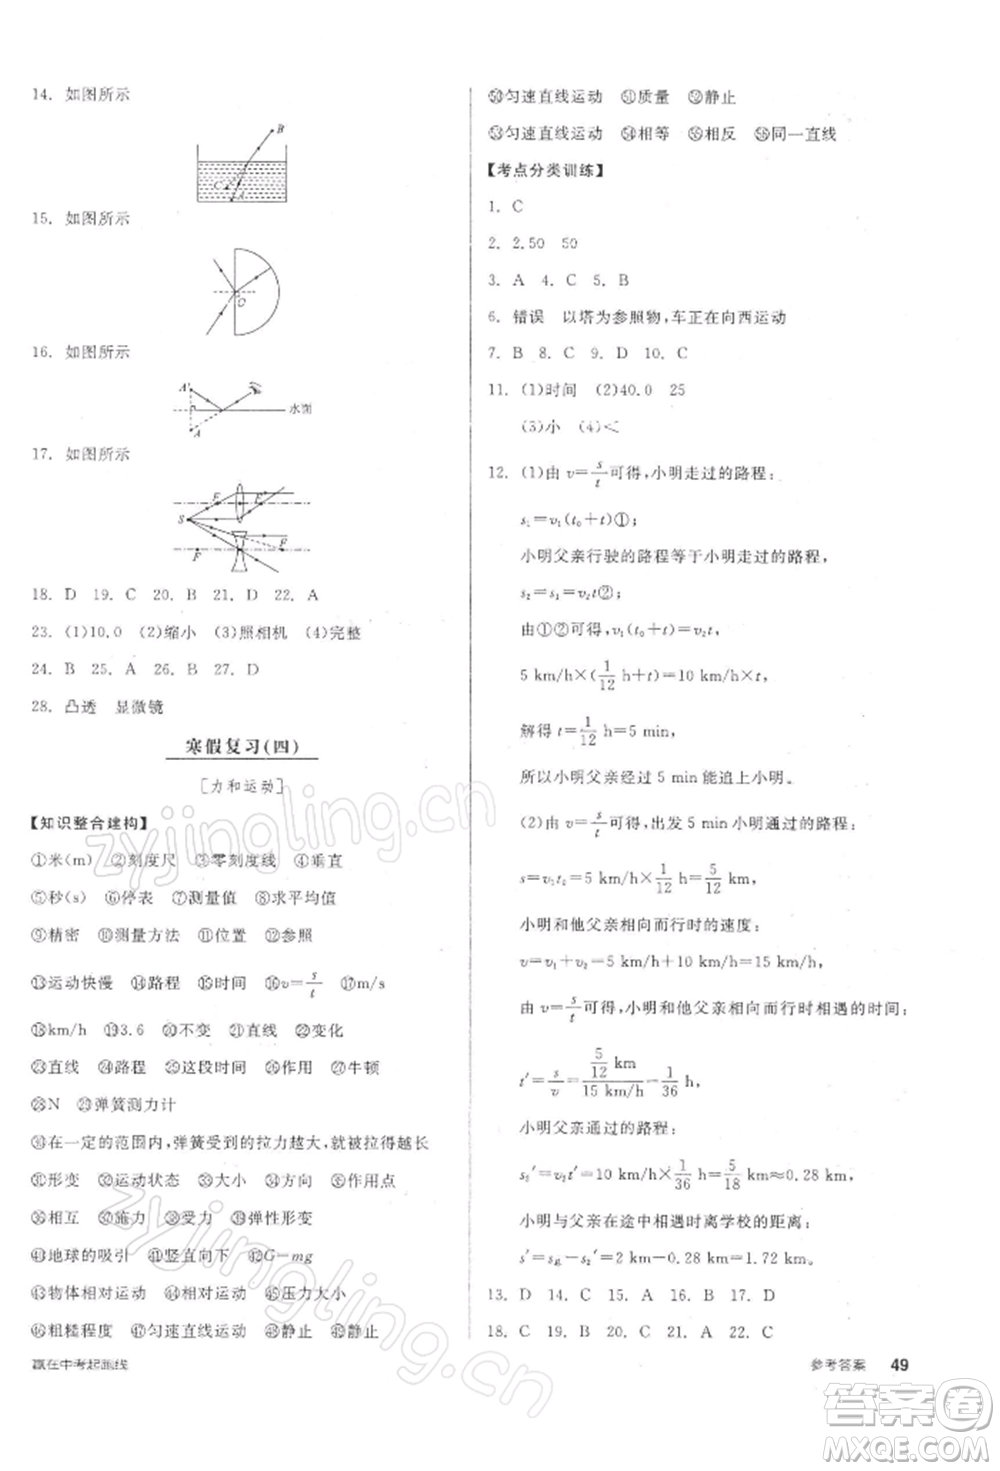 14. 如图所示
B
C
A
15. 如图所示
O
16. 如图所示
A'
水面
A
17. 如图所示
F
F
S
F
F
18. D 19. C 20. B 21. D 22. A
23. (1)10.0 (2)缩小 (3)照相机 (4)完整
24. B 25. A 26. B 27. D
28. 凸透 显微镜
寒假复习(四)
[力和运动]
【知识整合建构】
①米(m) ②刻度尺 ③零刻度线 ④垂直
⑤秒(s) ⑥停表 ⑦测量值 ⑧求平均值
⑨精密 ⑩测量方法 ⑪位置 ⑫参照
⑬运动快慢 ⑭路程 ⑮时间 ⑯v=s/t ⑰m/s
⑱km/h ⑲3.6 ⑳不变 ㉑直线 ㉒变化
㉓直线 ㉔路程 ㉕这段时间 ㉖作用 ㉗牛顿
㉘N ㉙弹簧测力计
㉚在一定的范围内,弹簧受到的拉力越大,就被拉得越长
㉛形变 ㉜运动状态 ㉝大小 ㉞方向 ㉟作用点
㊱相互 ㊲施力 ㊳受力 ㊴弹性形变
㊵地球的吸引 ㊶竖直向下 ㊷G=mg
㊸物体相对运动 ㊹相对运动 ㊺压力大小
㊻粗糙程度 ㊼匀速直线运动 ㊽静止 ㊾静止
赢在中考起跑线
㊿匀速直线运动 51质量 52静止
53匀速直线运动 54相等 55相反 56同一直线
【考点分类训练】
1. C
2. 2.50 50
3. A 4. C 5. B
6. 错误 以塔为参照物,车正在向西运动
7. B 8. C 9. D 10. C
11. (1)时间 (2)40.0 25
(3)小 (4)<
12. (1)由 v=s/t可得,小明走过的路程:
s₁=v₁(t₀+t)①;
小明父亲行驶的路程等于小明走过的路程,
s₂=s₁=v₂t②;
由①②可得,v₁(t₀+t)=v₂t,
5 km/h×(1/12 h+t)=10 km/h×t,
解得 t=1/12 h=5 min,
所以小明父亲经过 5 min能追上小明。
(2)由 v=s/t可得,出发 5 min小明走过的路程:
s=v₁t₀=5 km/h×1/12 h=5/12 km,
小明和他父亲相向而行时的速度:
v=v₁+v₂=5 km/h+10 km/h=15 km/h,
由 v=s/t可得,小明和他父亲相向而行时相遇的时间:
t'=s/v=(5/12 km)/(15 km/h)=1/36 h,
小明父亲通过的路程:
s₂'=v₂t'=10 km/h×1/36 h=5/18 km≈0.28 km,
小明与父亲在途中相遇时离学校的距离:
s'=s总-s₂'=2 km-0.28 km=1.72 km。
13. D 14. C 15. A 16. B 17. D
18. C 19. C 20. C 21. C 22. D
参考答案 49
zyjingling.cn
zyjingling.cn
答案卷
MXQE.COM